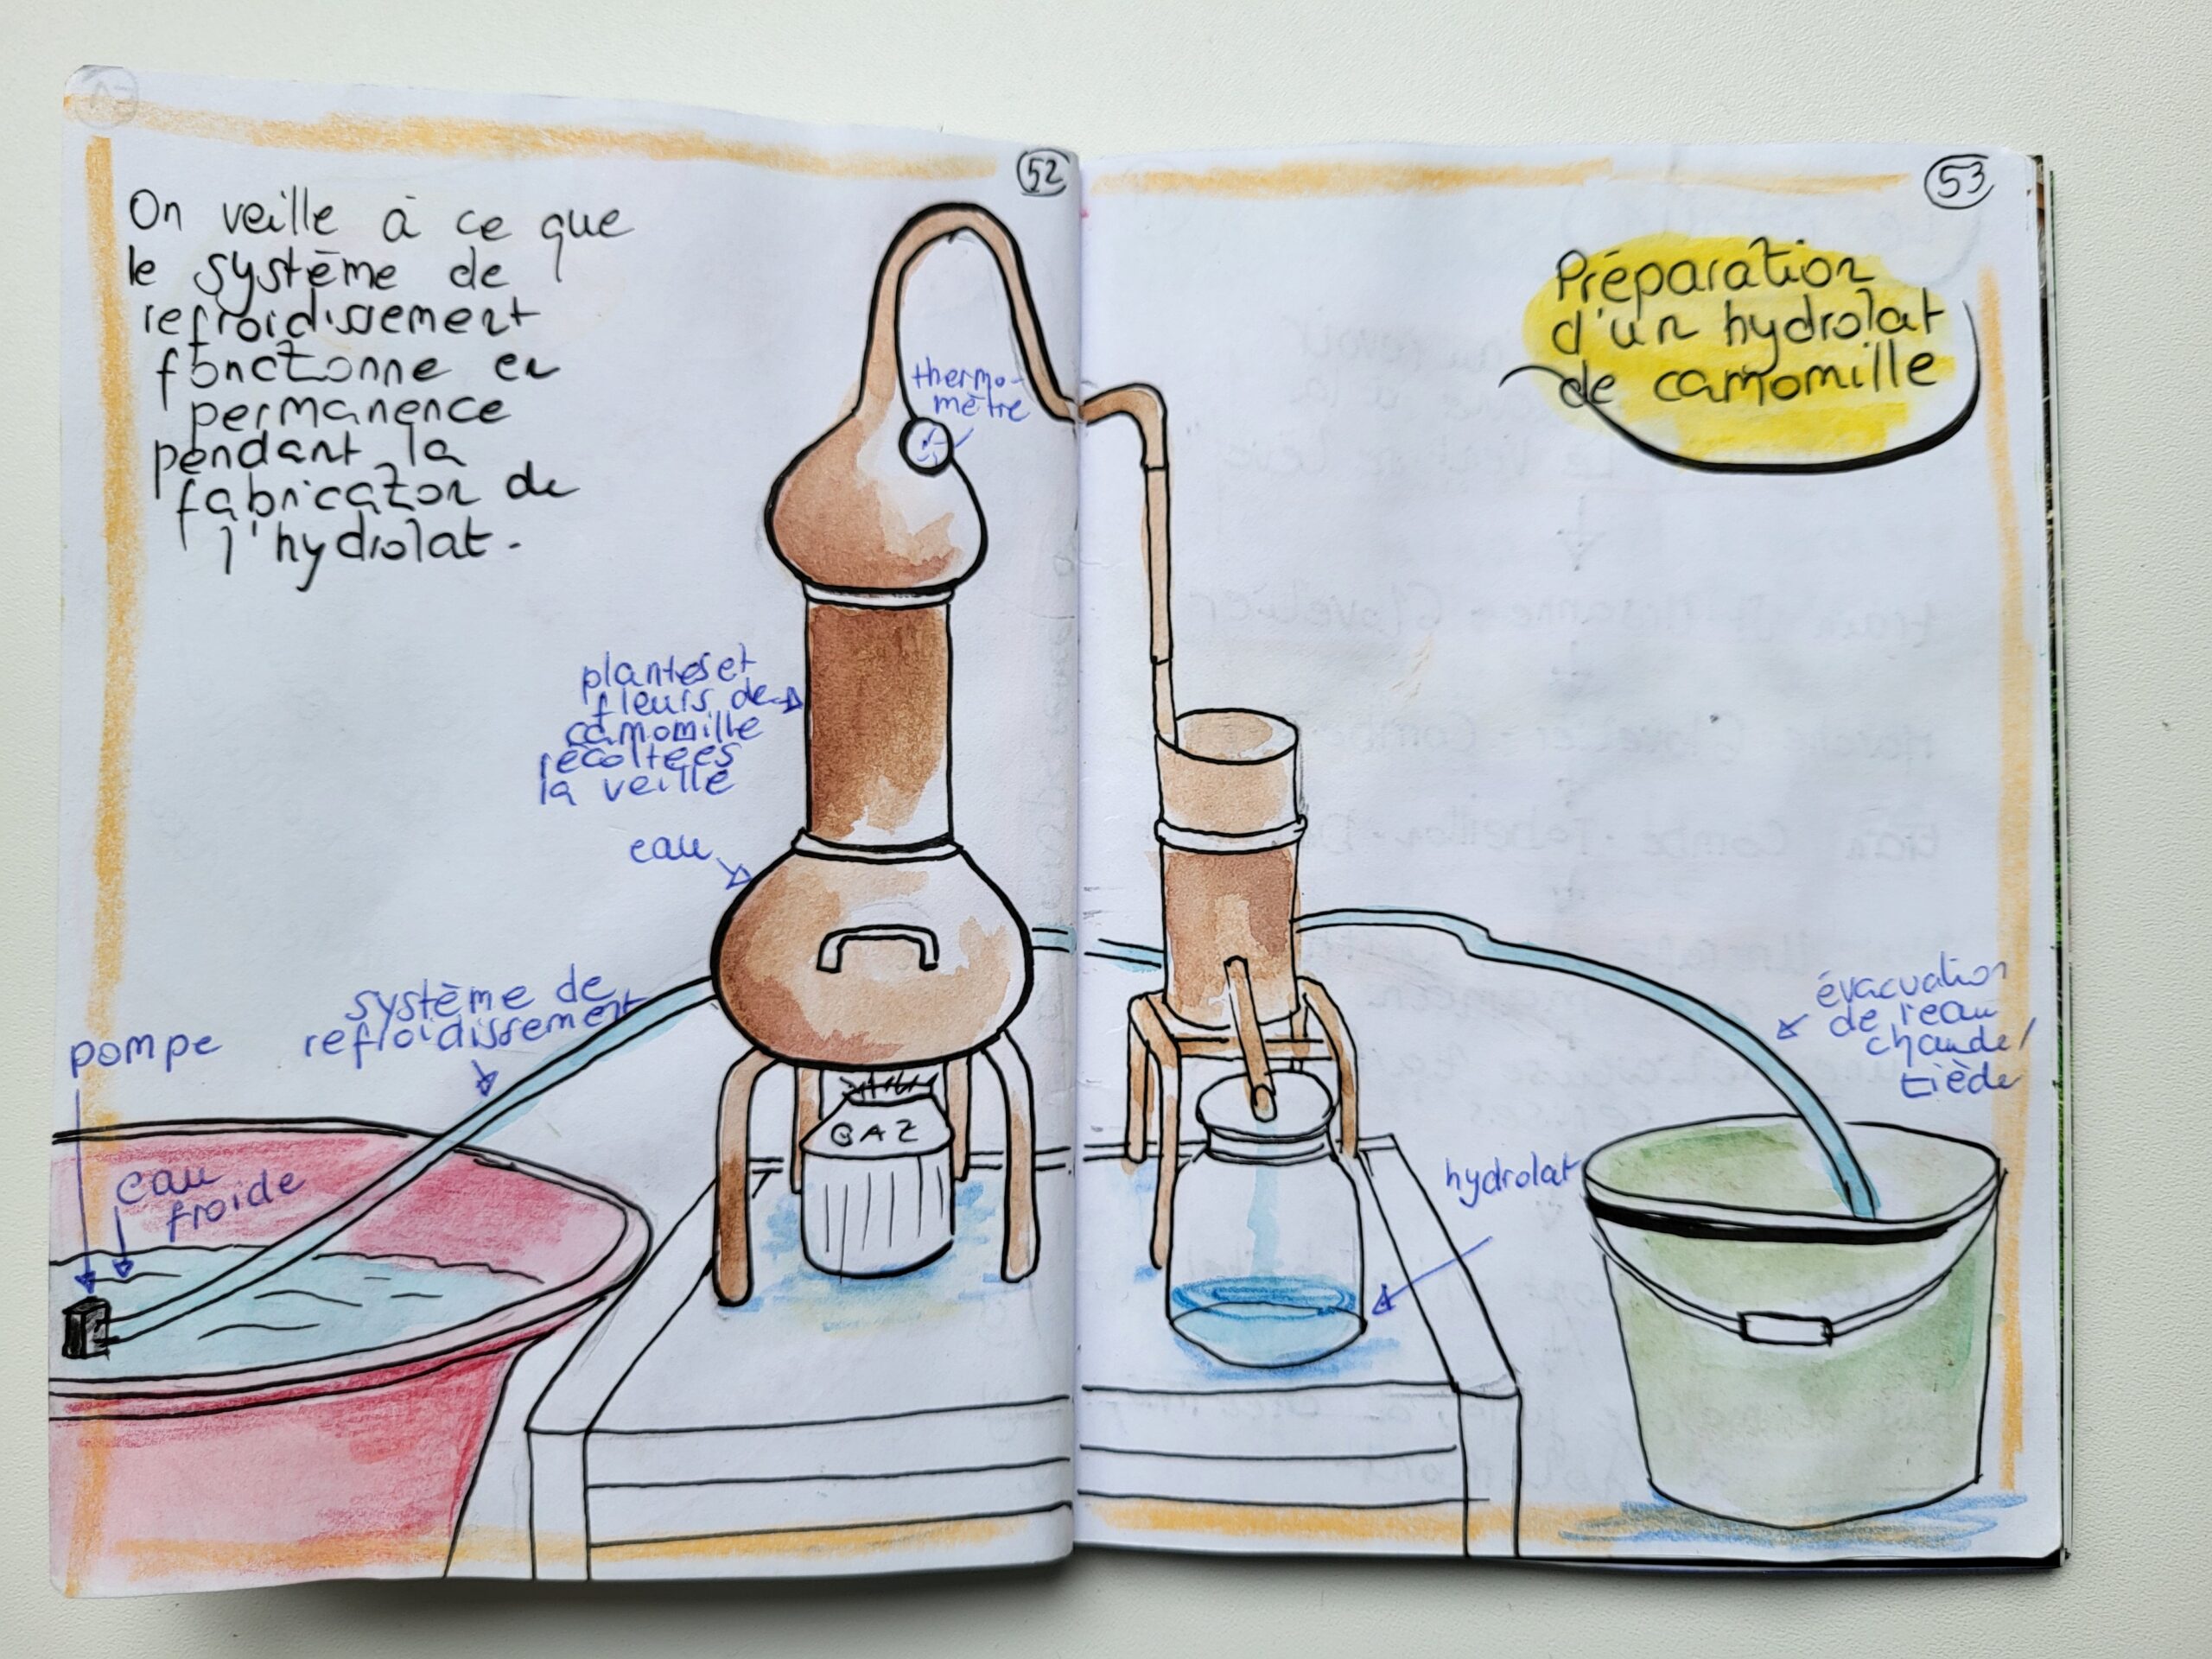 52
On veille à ce que
le système de
refroidissement
fonctionne en
permanence
pendant la
fabrication de
l'hydrolat.
thermo-
mètre
plantes et
fleurs de
camomille
récoltées
la veille
eau
système de
refroidissement
pompe
eau
froide
GAZ
53
Préparation
d'un hydrolat
de camomille
évacuation
de l'eau
chaude/
tiède
hydrolat